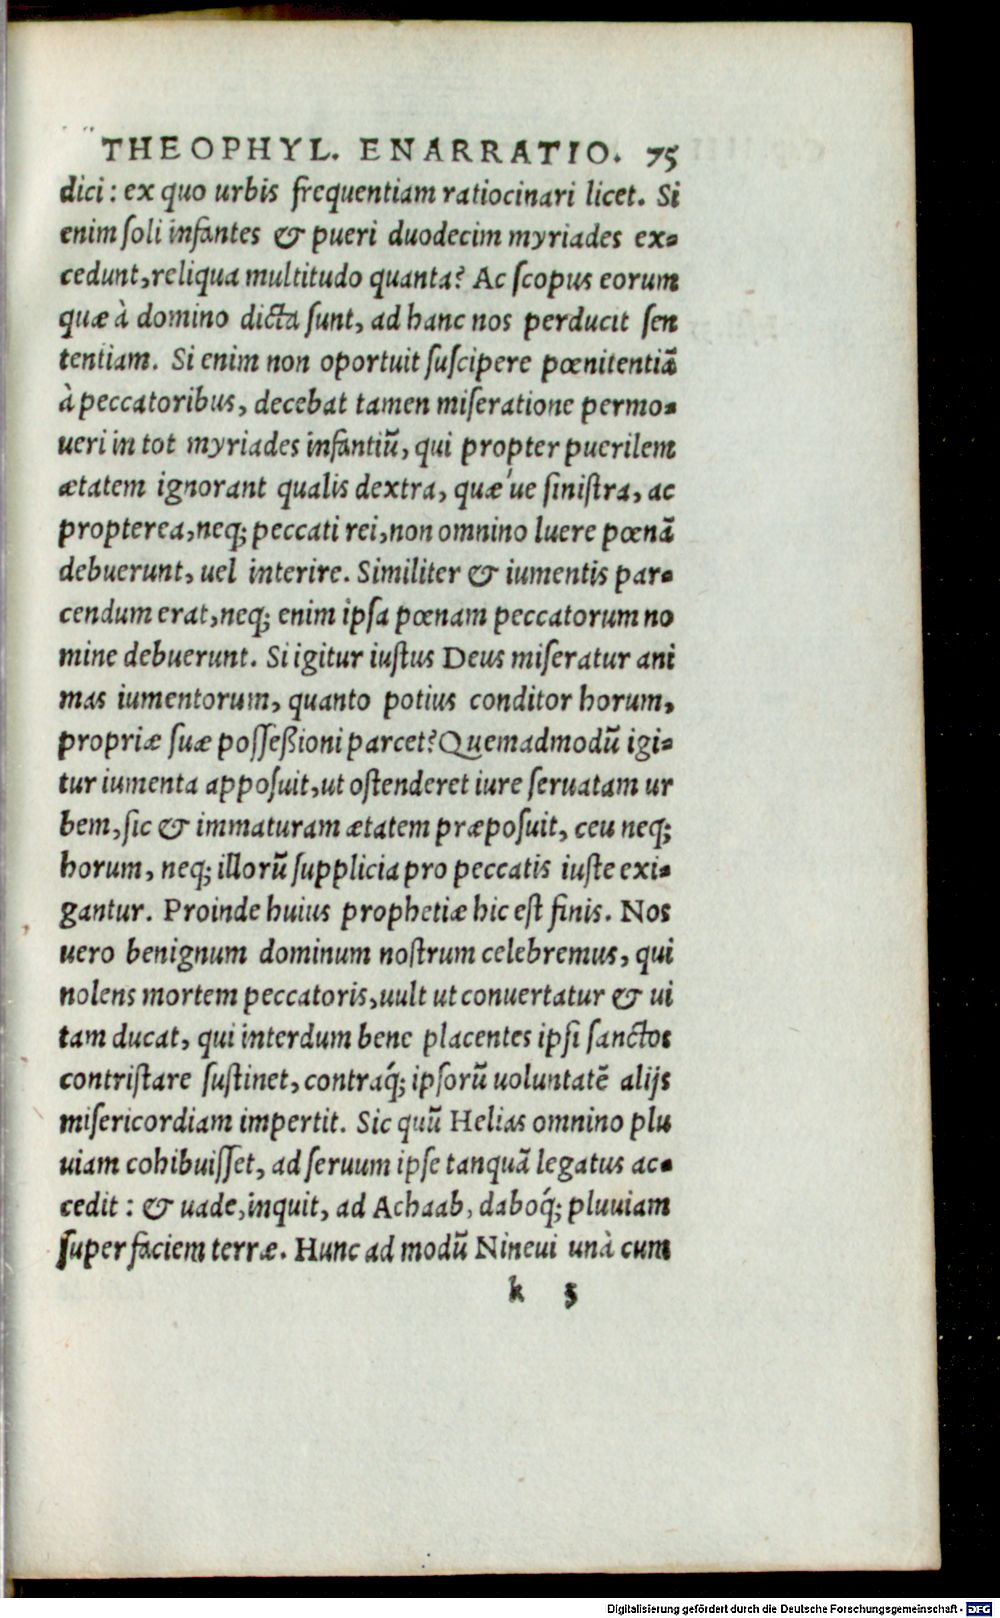 THEOPHYL. ENARRATIO. 75
dici: ex quo urbis frequentiam ratiocinari licet. Si
enim ſoli infantes & pueri duodecim myriades ex-
cedunt, reliqua multitudo quanta? Ac ſcopus eorum
quæ à domino dicta ſunt, ad hanc nos perducit ſen
tentiam. Si enim non oportuit ſuſcipere pœnitentiã
à peccatoribus, decebat tamen miſeratione permo-
ueri in tot myriades infantiũ, qui propter puerilem
ætatem ignorant qualis dextra, quæ'ue ſiniſtra, ac
propterea, neq; peccati rei, non omnino luere pœnã
debuerunt, uel interire. Similiter & iumentis par-
cendum erat, neq; enim ipſa pœnam peccatorum no
mine debuerunt. Si igitur iuſtus Deus miſeratur ani
mas iumentorum, quanto potius conditor horum,
propriæ ſuæ poſſeßioni parcet? Quemadmodũ igi-
tur iumenta appoſuit, ut oſtenderet iure ſeruatam ur
bem, ſic & immaturam ætatem præpoſuit, ceu neq;
horum, neq; illorũ ſupplicia pro peccatis iuſte exi-
gantur. Proinde huius prophetiæ hic eſt finis. Nos
uero benignum dominum noſtrum celebremus, qui
nolens mortem peccatoris, uult ut conuertatur & ui
tam ducat, qui interdum bene placentes ipſi ſanctos
contriſtare ſuſtinet, contraq́; ipſorũ uoluntatẽ alijs
miſericordiam impertit. Sic quũ Helias omnino plu
uiam cohibuiſſet, ad ſeruum ipſe tanquã legatus ac-
cedit: & uade, inquit, ad Achaab, daboq́; pluuiam
ſuper faciem terræ. Hunc ad modũ Nineui unà cum
k 3
Digitalisierung gefördert durch die Deutsche Forschungsgemeinschaft - DFG